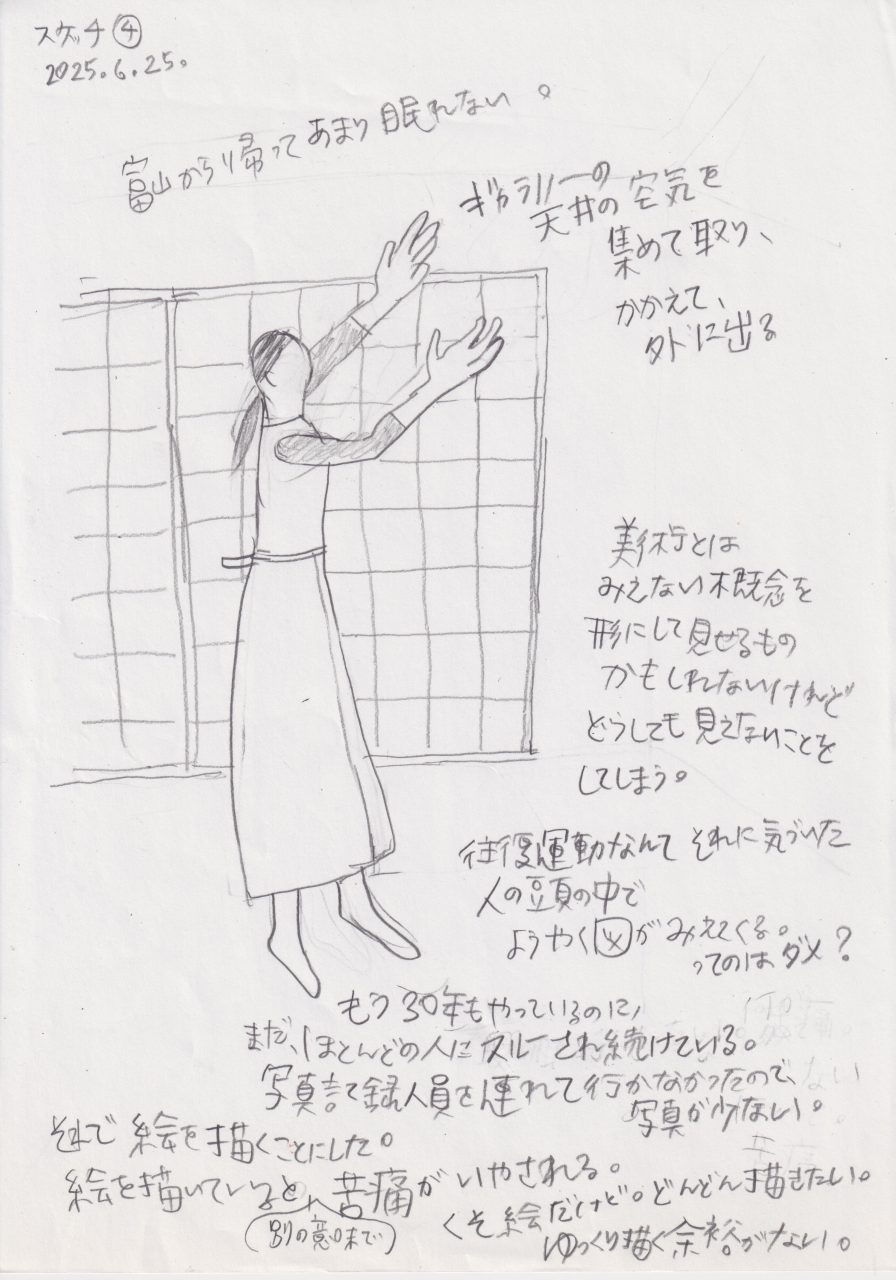 スケッチ④
2025.6.25.
富山から帰ってあまり眠れない。
ギャラリーの
天井の空気を
集めて取り、
かかえて、
外に出る
美術とは
みえない概念を
形にして見せるもの
かもしれないけれど
どうしても見えないことを
してしまう。
往復運動なんてそれに気づいた
人の頭の中で
ようやく図がみえてくる。
ってのはダメ?
もう30年もやっているのに、
まだ、ほとんどの人にスルーされ続けている。
写真記録人員を連れて行かなかったので、
写真が少ない。
それで絵を描くことにした。
絵を描いていると、苦痛がいやされる。
(別の意味で)
くそ絵だけど。どんどん描きたい。
ゆっくり描く余裕がない。